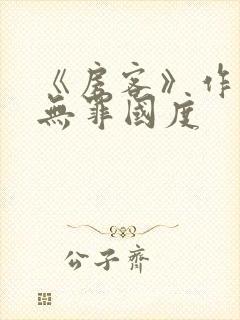 《房客》作
無罪國度
公子齊